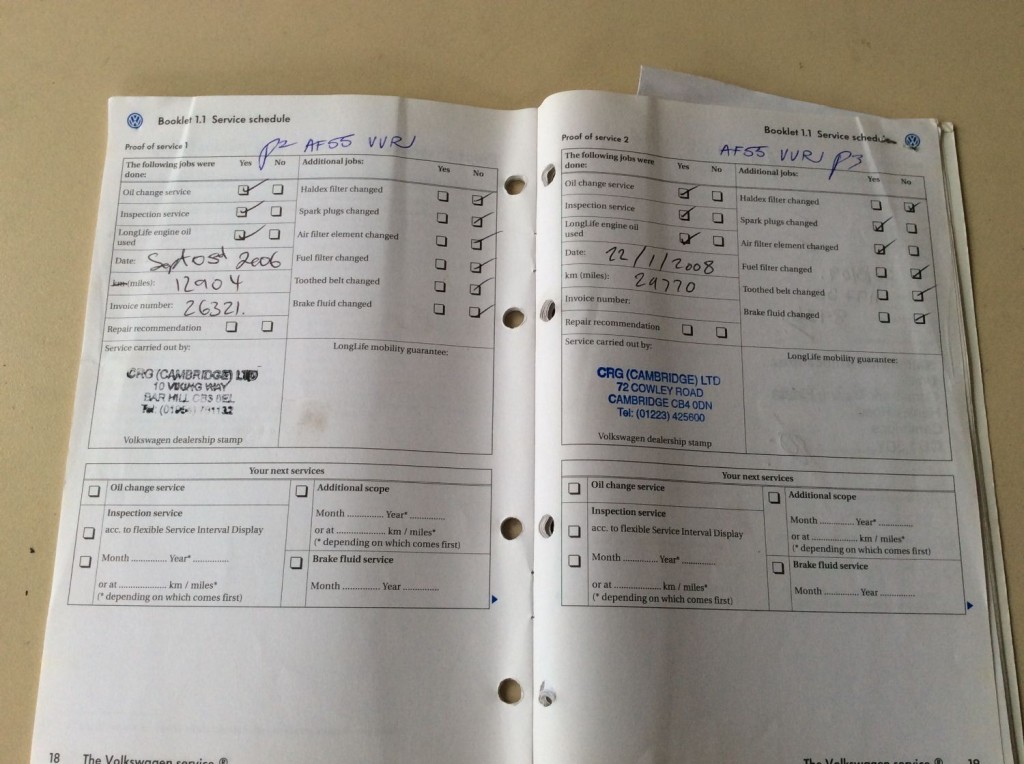 Booklet 1.1 Service schedule
Proof of service 1
P2 AF55 VVRJ
The following jobs were done: Yes No
Additional jobs: Yes No
Oil change service
Haldex filter changed
Inspection service
Spark plugs changed
LongLife engine oil used
Air filter element changed
Date: Sept 05th 2006
Fuel filter changed
km (miles): 12904
Toothed belt changed
Invoice number: 26321.
Brake fluid changed
Repair recommendation
Service carried out by:
LongLife mobility guarantee:
CRG (CAMBRIDGE) LTD
10 VIKING WAY
BAR HILL CB3 8EL
Tel:
Volkswagen dealership stamp
Your next services
Oil change service
Additional scope
Inspection service
Month .............. Year* ..............
acc. to flexible Service Interval Display
or at ...................... km / miles*
(* depending on which comes first)
Month .............. Year* ..............
Brake fluid service
or at ...................... km / miles*
Month .............. Year ..............
(* depending on which comes first)
18 The Volkswagen service ®
Booklet 1.1 Service schedule
Proof of service 2
AF55 VVRJ P3
The following jobs were done: Yes No
Additional jobs: Yes No
Oil change service
Haldex filter changed
Inspection service
Spark plugs changed
LongLife engine oil used
Air filter element changed
Date: 22/1/2008
Fuel filter changed
km (miles): 29770
Toothed belt changed
Invoice number:
Brake fluid changed
Repair recommendation
Service carried out by:
LongLife mobility guarantee:
CRG (CAMBRIDGE) LTD
72 COWLEY ROAD
CAMBRIDGE CB4 0DN
Tel: (01223) 425600
Volkswagen dealership stamp
Your next services
Oil change service
Additional scope
Inspection service
Month .............. Year* ..............
acc. to flexible Service Interval Display
or at ...................... km / miles*
(* depending on which comes first)
Month .............. Year* ..............
Brake fluid service
or at ...................... km / miles*
Month .............. Year ..............
(* depending on which comes first)
The Volkswagen service ® 19